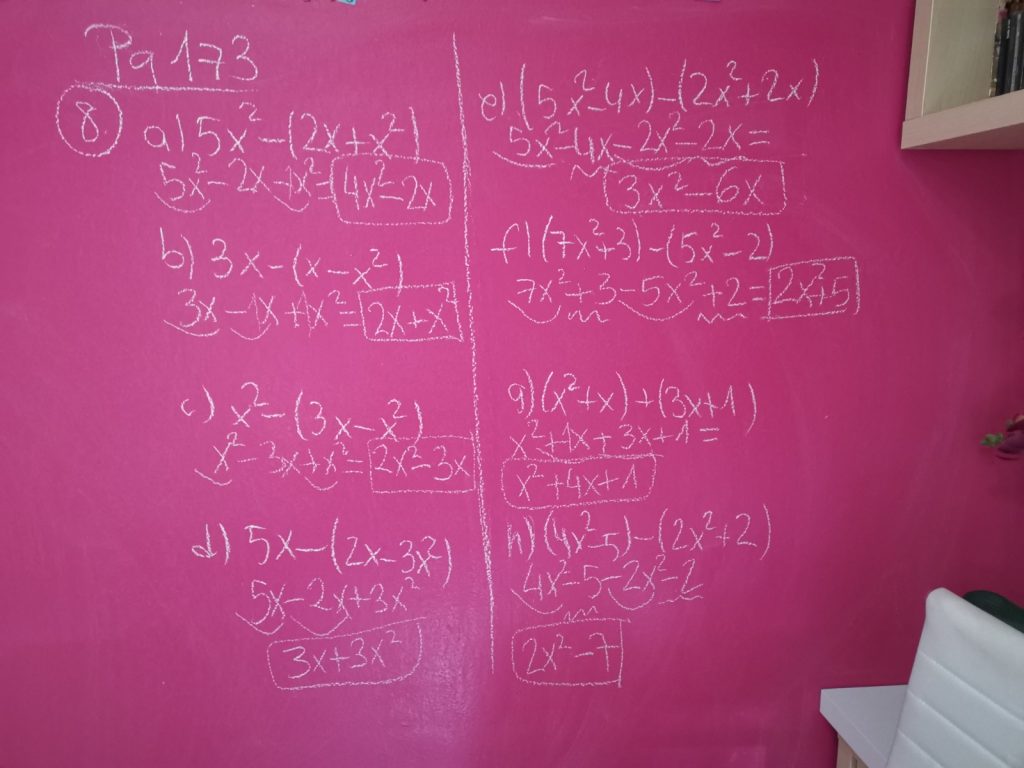 Pg 173
8
a) 5x² - (2x + x²)
5x² - 2x - 1x² = 4x² - 2x
b) 3x - (x - x²)
3x - 1x + 1x² = 2x + x²
c) x² - (3x - x²)
x² - 3x + x² = 2x² - 3x
d) 5x - (2x - 3x²)
5x - 2x + 3x²
3x + 3x²
e) (5x² - 4x) - (2x² + 2x)
5x² - 4x - 2x² - 2x =
3x² - 6x
f) (7x² + 3) - (5x² - 2)
7x² + 3 - 5x² + 2 = 2x² + 5
g) (x² + x) + (3x + 1)
x² + 1x + 3x + 1 =
x² + 4x + 1
h) (4x² - 5) - (2x² + 2)
4x² - 5 - 2x² - 2
2x² - 7